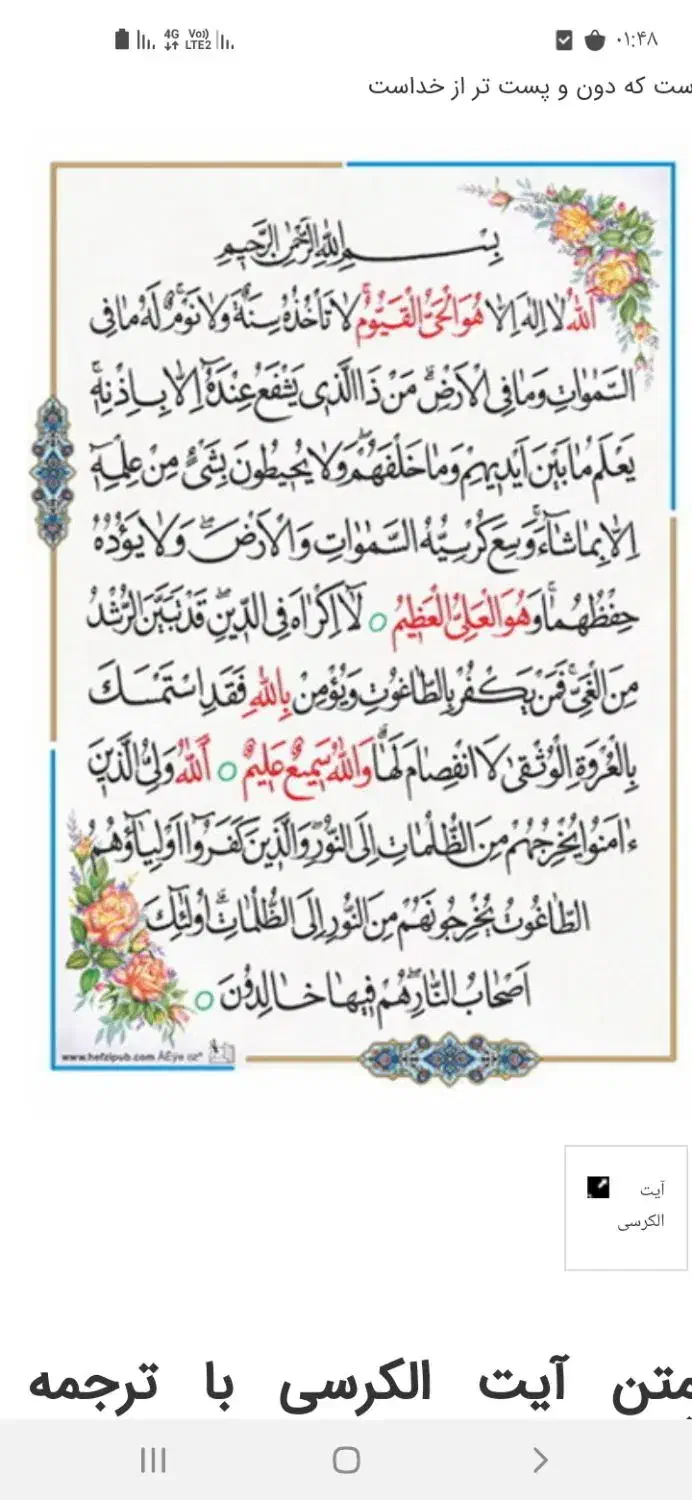 ۰۱:۴۸
4G Vo)) LTE2
ست که دون و پست تر از خداست
بِسْمِ اللّٰهِ الرَّحْمٰنِ الرَّحِيمِ
اَللّٰهُ لَا اِلٰهَ اِلَّا هُوَ الْحَيُّ الْقَيُّومُ ۚ لَا تَأْخُذُهُ سِنَةٌ وَلَا نَوْمٌ ۚ لَهُ مَا فِي
السَّمٰوَاتِ وَمَا فِي الْاَرْضِ ۗ مَنْ ذَا الَّذِي يَشْفَعُ عِنْدَهُ اِلَّا بِاِذْنِهِ ۚ
يَعْلَمُ مَا بَيْنَ اَيْدِيهِمْ وَمَا خَلْفَهُمْ ۖ وَلَا يُحِيطُونَ بِشَيْءٍ مِنْ عِلْمِهِ
اِلَّا بِمَا شَاءَ ۚ وَسِعَ كُرْسِيُّهُ السَّمٰوَاتِ وَالْاَرْضَ ۖ وَلَا يَؤُدُهُ
حِفْظُهُمَا ۚ وَهُوَ الْعَلِيُّ الْعَظِيمُ ○ لَا اِكْرَاهَ فِي الدِّينِ ۖ قَدْ تَبَيَّنَ الرُّشْدُ
مِنَ الْغَيِّ ۚ فَمَنْ يَكْفُرْ بِالطَّاغُوتِ وَيُؤْمِنْ بِاللّٰهِ فَقَدِ اسْتَمْسَكَ
بِالْعُرْوَةِ الْوُثْقٰى لَا انْفِصَامَ لَهَا ۗ وَاللّٰهُ سَمِيعٌ عَلِيمٌ ○ اَللّٰهُ وَلِيُّ الَّذِينَ
ءَامَنُوا يُخْرِجُهُمْ مِنَ الظُّلُمَاتِ اِلَى النُّورِ ۖ وَالَّذِينَ كَفَرُوا اَوْلِيَاؤُهُمُ
الطَّاغُوتُ يُخْرِجُونَهُمْ مِنَ النُّورِ اِلَى الظُّلُمَاتِ ۗ اُولٰئِكَ
اَصْحَابُ النَّارِ ۖ هُمْ فِيهَا خَالِدُونَ ○
www.hefzipub.com
آیت
الکرسی
متن آیت الکرسی با ترجمه